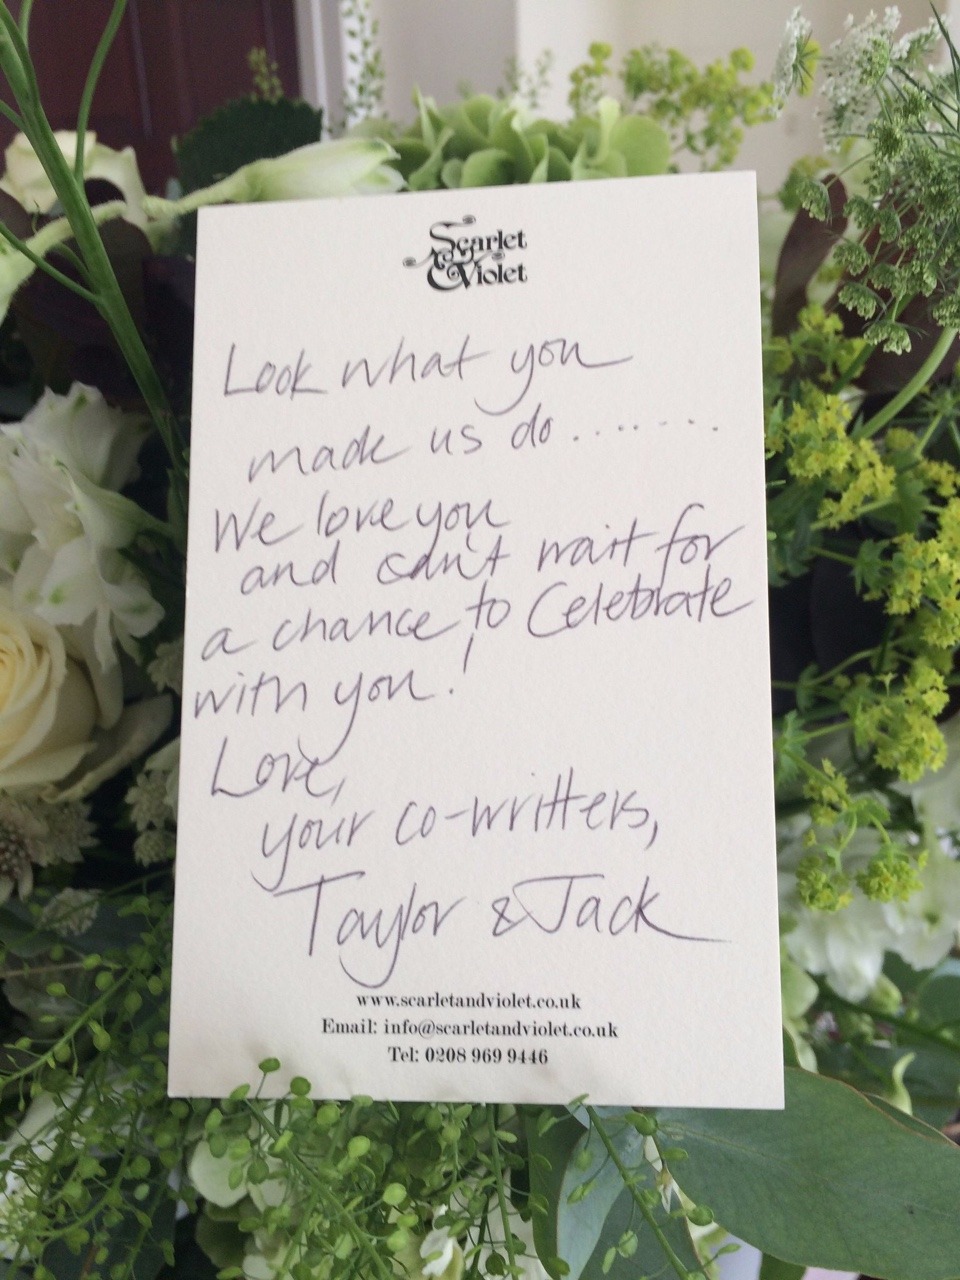 Scarlet
& Violet
Look what you
made us do ........
We love you
and can't wait for
a chance to Celebrate
with you!
Love,
your co-writters,
Taylor & Jack
www.scarletandviolet.co.uk
Email: info@scarletandviolet.co.uk
Tel: 0208 969 9446